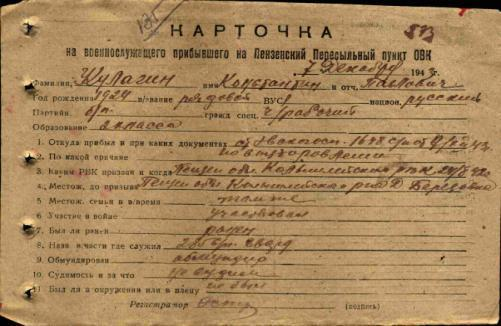 185
КАРТОЧКА
513
на военнослужащего прибывшего на Пензенский Пересыльный пункт ОВК
7 декабря 1943 г.
Фамилия, Кулагин имя Константин и отч. Павлович
Год рождения 1924 в/звание рядовой ВУС национ. русский
Партийн. б/п. гражд спец. ч/рабочий
Образование 2 класса
1. Откуда прибыл и при каких документах
2. По какой причине по выздоровлении
3. Каким РВК призван и когда Пенз. обл.
4. Местож. до призыва Пенз. обл. Колышлейский р-н д. Березовка
5. Местож. семьи в в/время там же
6. Участие в войне участвовал
7. Был ли ранен ранен
8. Назв в части где служил
9. Обмундирован
10. Судимость и за что не судим
11. Был ли в окружении или в плену не был
Регистратор (подпись)